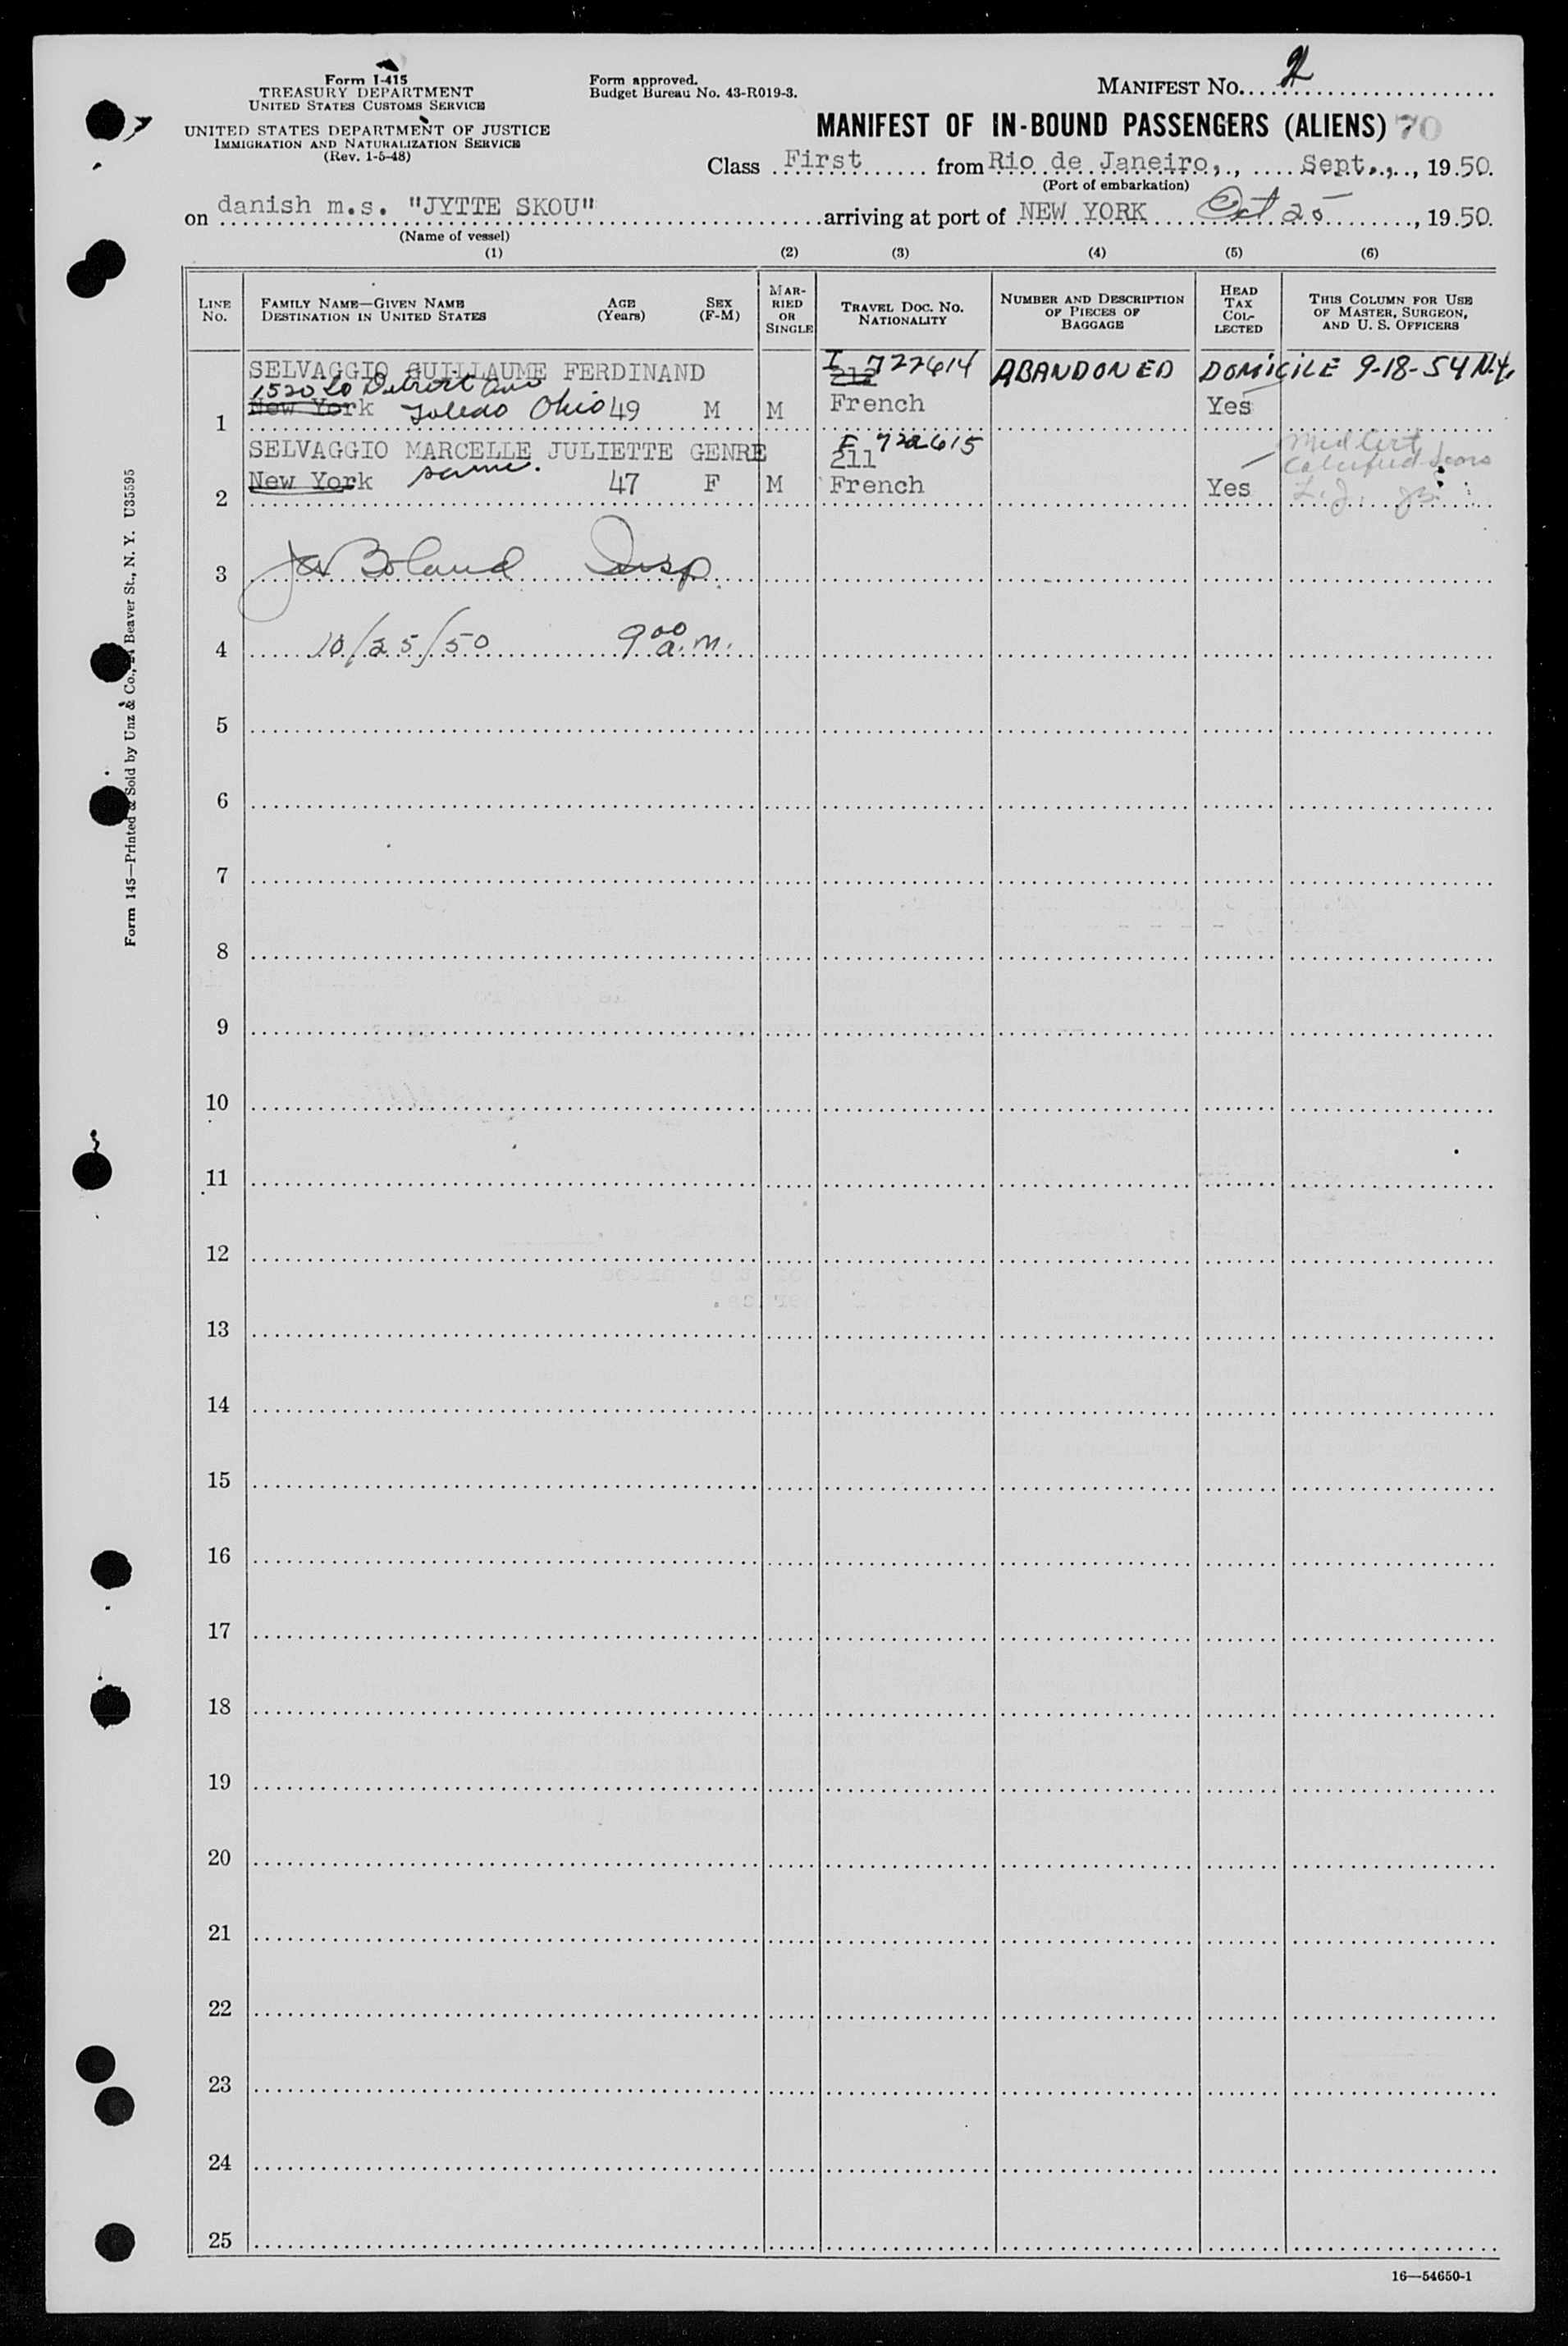 Form I-415
TREASURY DEPARTMENT
UNITED STATES CUSTOMS SERVICE
UNITED STATES DEPARTMENT OF JUSTICE
IMMIGRATION AND NATURALIZATION SERVICE
(Rev. 1-5-48)
Form approved.
Budget Bureau No. 43-R019-3.
MANIFEST No. 2
MANIFEST OF IN-BOUND PASSENGERS (ALIENS) 70
Class First from Rio de Janeiro, Sept., 1950.
(Port of embarkation)
on danish m.s. "JYTTE SKOU" arriving at port of NEW YORK Oct 25, 1950.
(Name of vessel)
(1) (2) (3) (4) (5) (6)
LINE No.
FAMILY NAME—GIVEN NAME
DESTINATION IN UNITED STATES
AGE (Years)
SEX (F-M)
MARRIED OR SINGLE
TRAVEL DOC. NO.
NATIONALITY
NUMBER AND DESCRIPTION OF PIECES OF BAGGAGE
HEAD TAX COLLECTED
THIS COLUMN FOR USE OF MASTER, SURGEON, AND U. S. OFFICERS
SELVAGGIO GUILLAUME FERDINAND I 722614 ABANDONED DOMICILE 9-18-54 N.Y.
1520 So Detroit Ave 212
1 New York Toledo Ohio 49 M M French Yes
SELVAGGIO MARCELLE JULIETTE GENRE 722615 Med Cert
same. 211 Calcified
2 New York 47 F M French Yes
3 Boland Insp.
4 10/25/50 9 00 a.m.
5
6
7
8
9
10
11
12
13
14
15
16
17
18
19
20
21
22
23
24
25
Form 145—Printed & Sold by Unz & Co., Beaver St., N. Y. U35595
16—54650-1